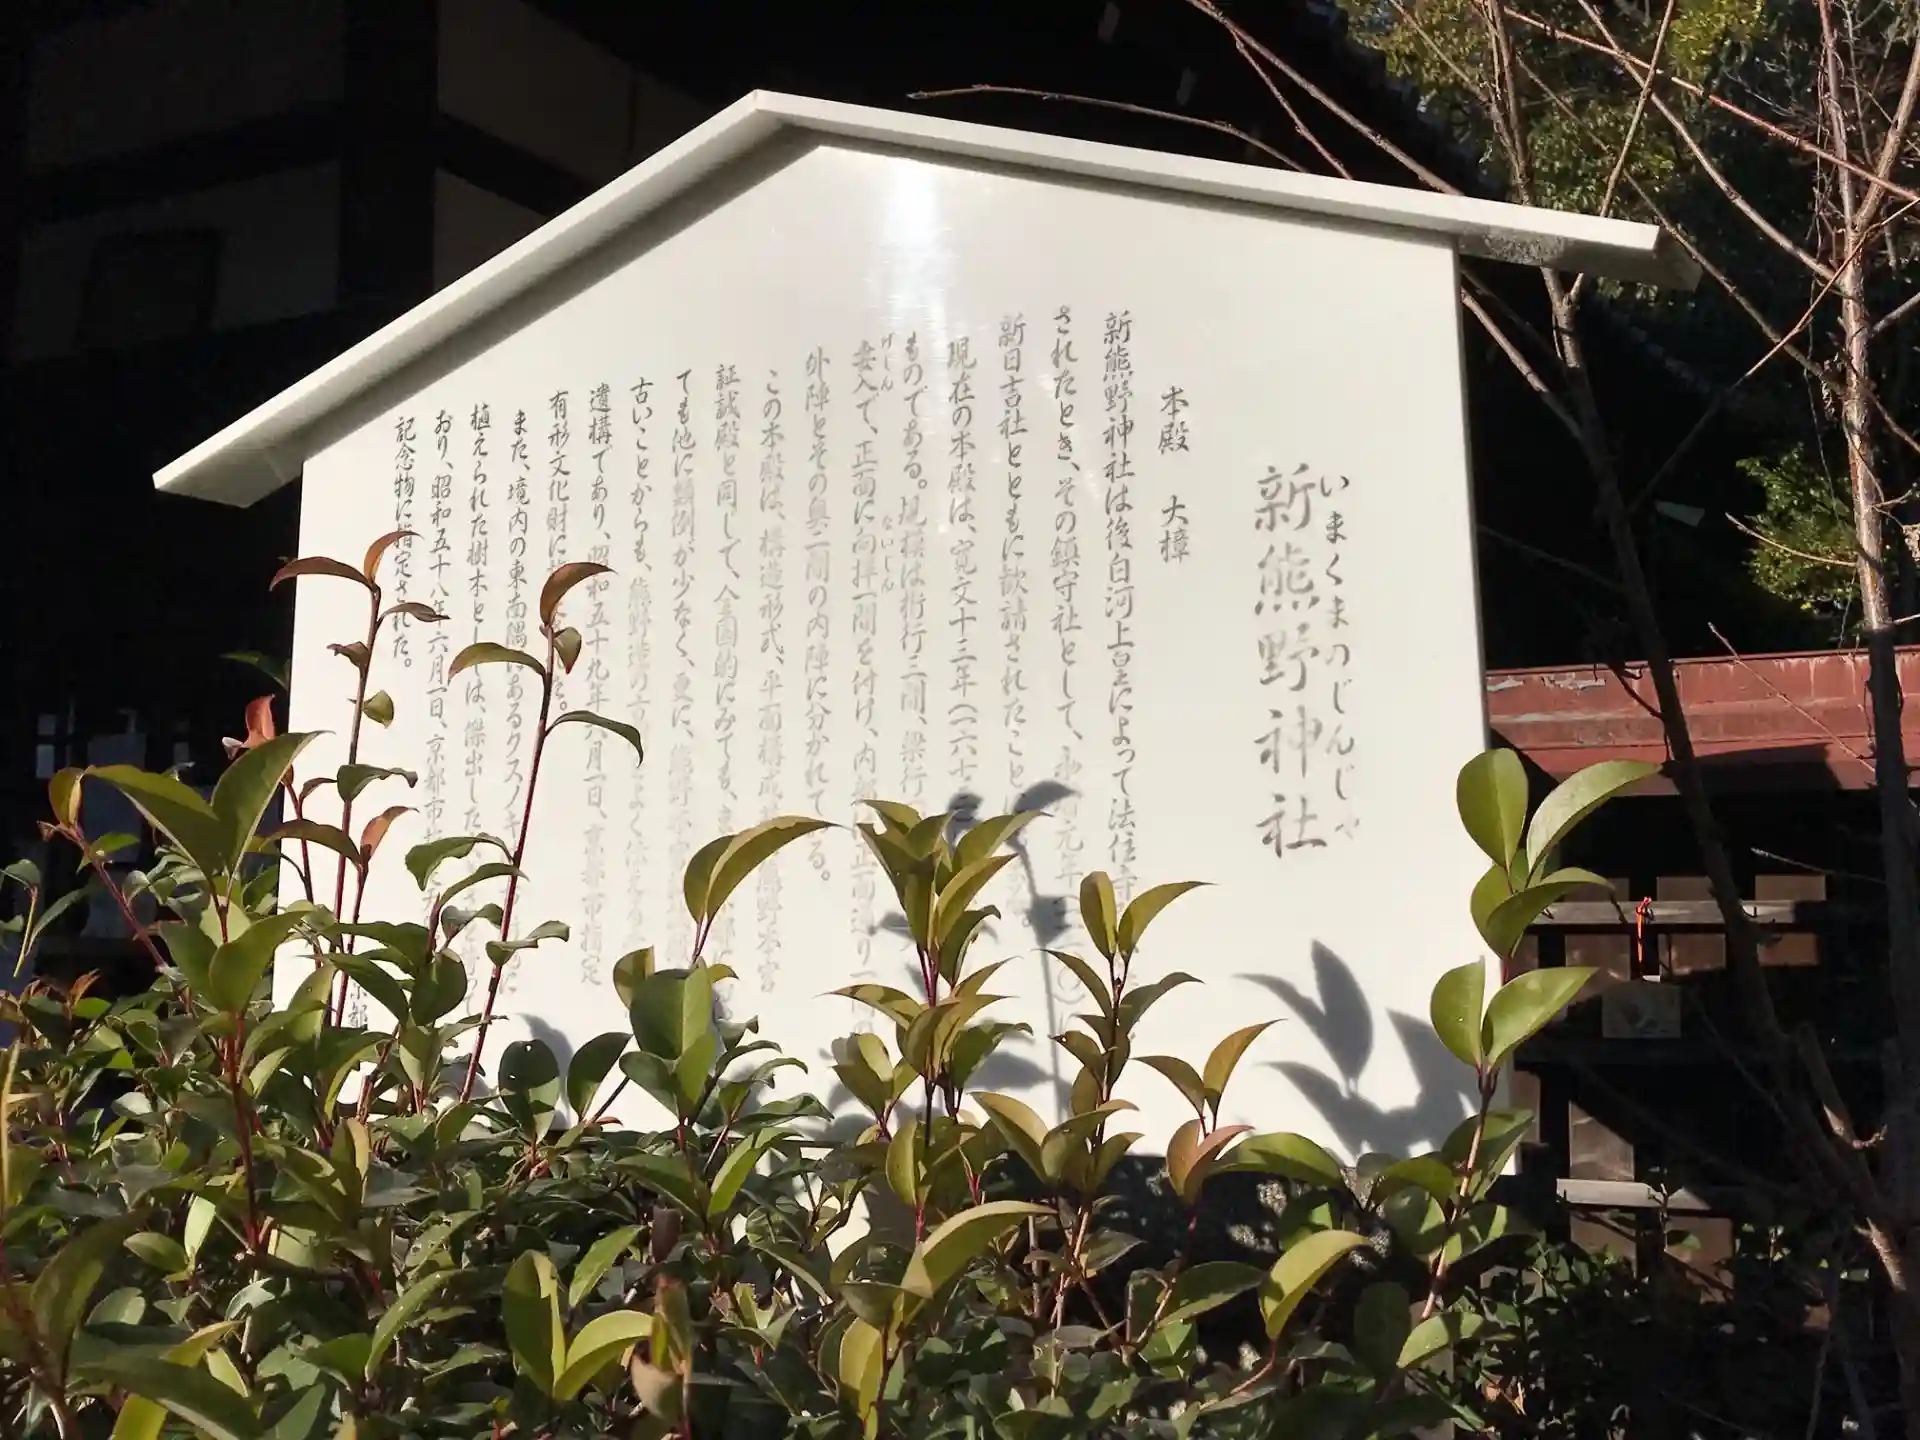 いまくまのじんじゃ
新熊野神社
本殿　大樟
新熊野神社は後白河上皇によって法住寺
されたとき、その鎮守社として、永暦元年(一一六〇)に
新日吉社とともに歓請されたことに
現在の本殿は、寛文十三年(一六七三)
ものである。規模は桁行三間、梁行
げじん　ないじん
妻入で、正面に向拝一間を付け、内部は正面通り一間の
外陣とその奥二間の内陣に分かれている。
この本殿は、構造形式、平面構成共熊野本宮
証誠殿と同じして、全国的にみても、また
ても他に類例が少なく、更に、熊野本宮証誠殿
古いことからも、熊野造の古式をよく伝える
遺構であり、昭和五十九年六月一日、京都市指定
有形文化財に指定された。
また、境内の東南隅にあるクスノキ
植えられた樹木としては、傑出した大きさを持って
おり、昭和五十八年六月一日、京都市指定天然
記念物に指定された。
京都